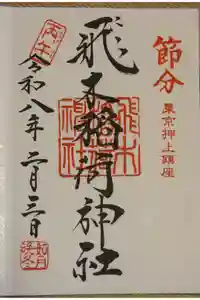 節分
東京押上鎮座
飛木稲荷神社
飛木
稲荷
神社
丙午
令和八年 二月三日
如月